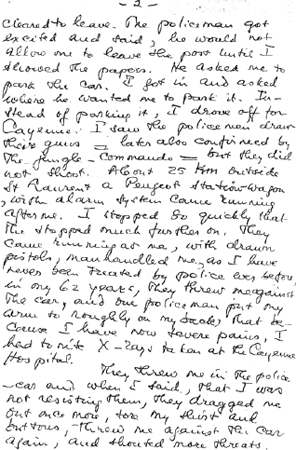 - 2 -
cleared to leave. The policeman got
excited and said, he would not
allow me to leave the post until I
showed the papers. He asked me to
park the car. I got in and asked
where he wanted me to park it. In-
stead of parking it, I drove off for
Cayenne. I saw the policemen draw
their guns = later also confirmed by
the jungle-commando = but they did
not shoot. About 25 Km outside
St Laurent a Peugeot station-wagon
, with alarm system came running
after me. I stopped so quickly that
the stopped much further on. They
came running at me, with drawn
pistols, manhandled me, as I have
never been treated by police ever before
in my 62 years, they threw me against
the car, and one policeman put my
arm to roughly on my back, that be-
cause I have now severe pains, I
had to X-rays taken at the Cayenne
Hospital.
They threw me in the police
-car and when I said, that I was
not resisting them, they dragged me
out once more, tore my shirt and
buttons, threw me against the car
again, and shouted more threats.